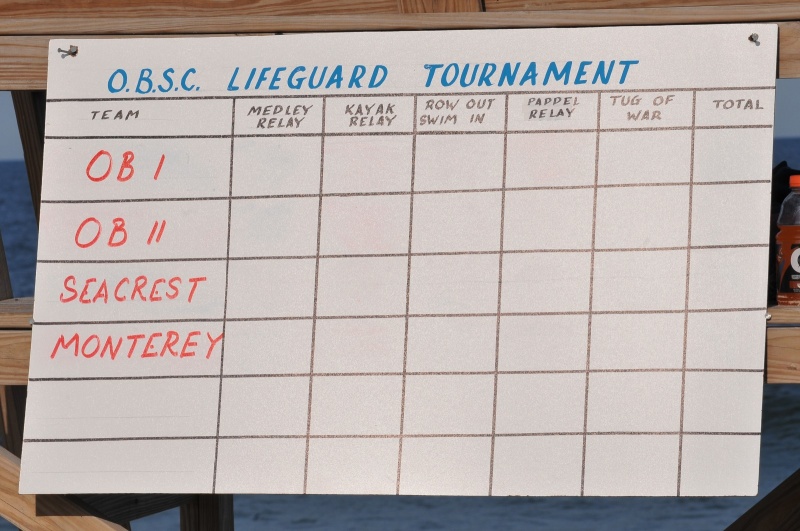 O.B.S.C. LIFEGUARD TOURNAMENT
TEAM
MEDLEY
RELAY
KAYAK
RELAY
ROW OUT
SWIM IN
PAPPEL
RELAY
TUG OF
WAR
TOTAL
OB I
OB II
SEACREST
MONTEREY